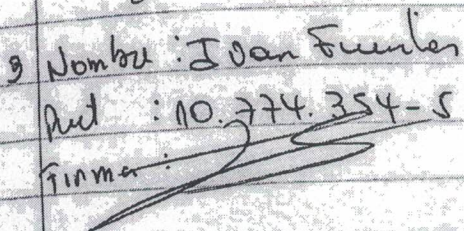 3 Nombre : Ivan Fuentes
Rut : 10.774.354-5
Firma :